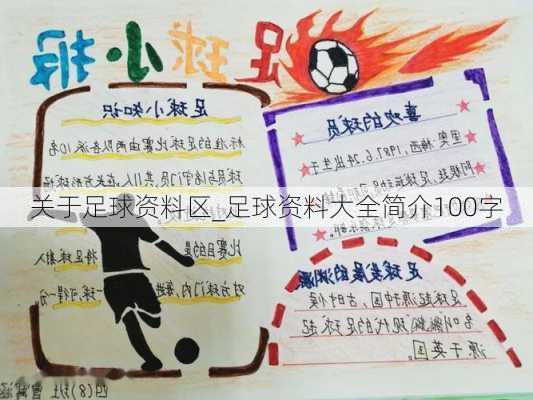 足球小报
足球小知识
标准的足球比赛由两队各派10名
喜欢的球员
里奥·梅西,1987.6.24出生于
关于足球资料区_足球资料大全简介100字
比赛目的是
将足球射入
对方球门内,每进一球可得一分
足球发展的渊源
足球起源中国,古时候
名叫蹴鞠,现代的足球起
源于英国
四(8)班